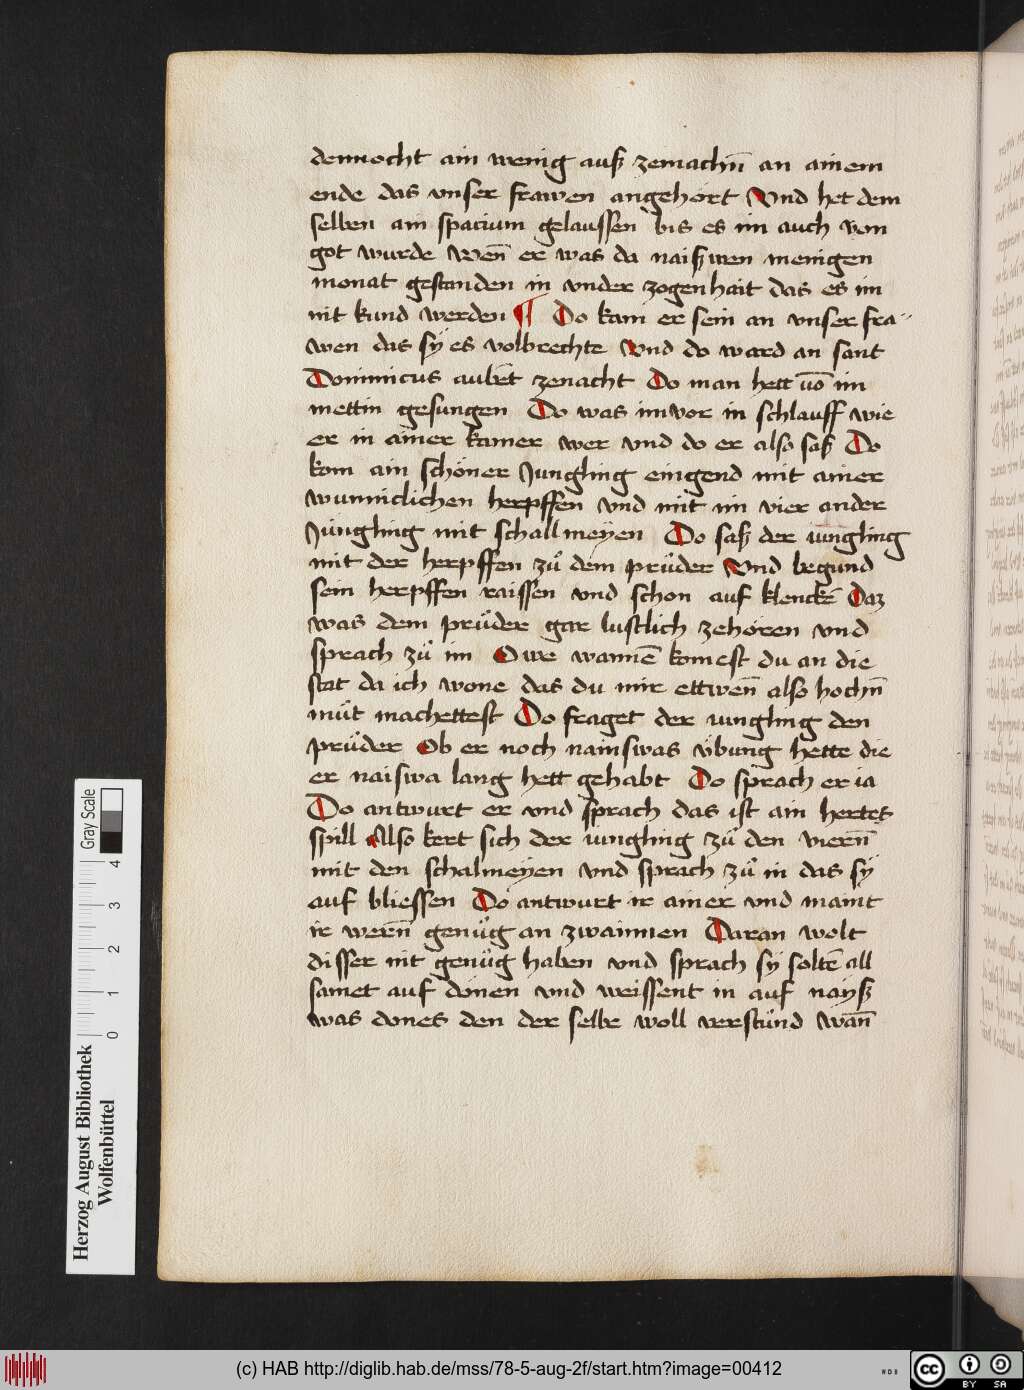 dennocht ain wenig auß zemachn̄ an ainem
ende das vnser frawen angehört Vnd het dem
selben ain spacium gelaussen bis es im auch von
got wurde Wen̄ er was da naißwen menigen
monat gestanden in vnder zogenhait das es im
nit kund werden ¶ Do kam er sein an vnser fra⸗
wen das sÿ es volbrechte Vnd do ward an sant
Dominicus aubēt zenacht Do man hett vō im
mettin gesungen Do was im vor in schlauff wie
er in ainer kamer wer vnd do er also saß Do
kom ain schöner Jungling eingend mit ainer
wunniclichen herpffen vnd mit im vier ander
Jüngling mit schallmeyen Do saß der iungling
mit der herpffen zů dem průder Vnd begund
sein herpffen raissen vnd schon auf klenckē Daz
was dem průder gar lustlich zehören vnd
sprach zů im Owe wannē komest du an die
stat da ich wone das du mir ettwen̄ also hochn̄
můt machettest Do fraget der iungling den
průder Ob er noch nainswas vbung hette die
er naiswa lang hett gehabt Do sprach er ia
Do antwurt er vnd sprach das ist ain hertes
spill Also kert sich der iungling zů den viern̄
mit den schalmeyen vnd sprach zů in das sÿ
auf bliessen Do antwurt ir ainer vnd maint
ir wern̄ genůg an zwainen Daran wolt
disser nit genůg haben vnd sprach sÿ soltē all
samet auf dönen vnd weissent in auf nayß
was dones den der selbe woll verstůnd wan̄
Gray Scale
0 1 2 3 4
Herzog August Bibliothek
Wolfenbüttel
(c) HAB http://diglib.hab.de/mss/78-5-aug-2f/start.htm?image=00412
cc BY SA